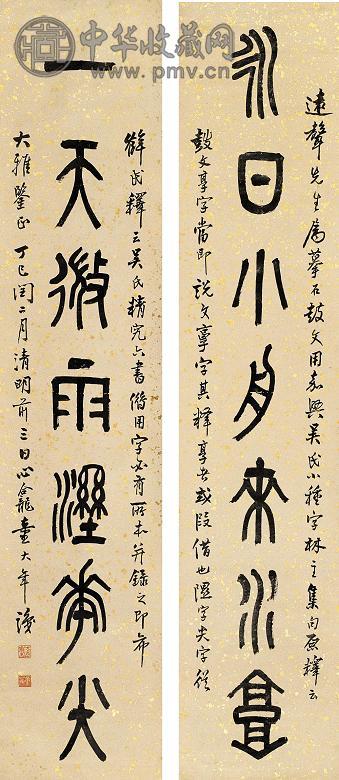 中华收藏网
www.pmv.cn
中华收藏网
www.pmv.cn
遠聲先生屬摹石鼓文用嘉興吳氏小種字林主集句原釋云
永日小舟來水享
鼓文享字當即說文𦎫字其釋享者或叚借也溼字尖字從
薛氏釋云吳氏精究六書借用字必有所本并錄之即希
一天微雨溼華尖
大雅鑒正 丁巳閏二月清明前三日心龕童大年識